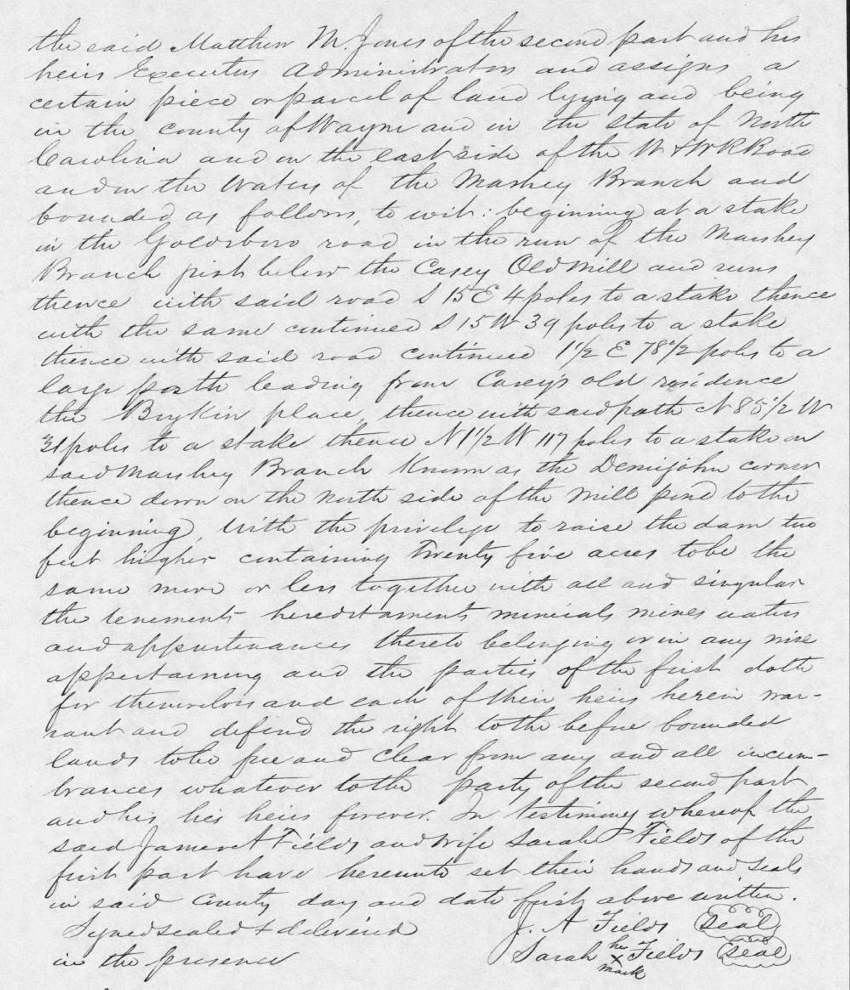 the said Matthew M. Jones of the second part and his
heirs Executors administrators and assigns a
certain piece or parcel of land lying and being
in the county of Wayne and in the state of North
Carolina and on the east side of the W & W R Road
and on the waters of the Marshey Branch and
bounded as follows, to wit: beginning at a stake
in the Goldsboro road in the run of the Marshey
Branch just below the Casey Old Mill and runs
thence with said road S 15 E 4 poles to a stake thence
with the same continued S 15 W 39 poles to a stake
thence with said road continued 1 1/2 E 78 1/2 poles to a
large path leading from Casey's old residence
the Boykin place, thence with said path N 85 1/2 W
31 poles to a stake thence N 1 1/2 W 117 poles to a stake on
said Marshey Branch Known as the Demijohn corner
thence down on the north side of the mill pond to the
beginning, with the privilege to raise the dam two
feet higher containing Twenty five acres to be the
same more or less together with all and singular
the tenements hereditaments minerals mines waters
and appurtenances thereto belonging or in any wise
appertaining and the parties of the first doth
for themselves and each of their heirs herein war-
rant and defend the right to the before bounded
lands to be free and clear from any and all incum-
brances whatever to the party of the second part
and his his heirs forever. In testimony whereof the
said James A Fields and wife Sarah Fields of the
first part have hereunto set their hands and seals
in said County day and date first above written.
Signed sealed & delivered J. A Fields (Seal)
in the presence Sarah her x mark Fields (Seal)